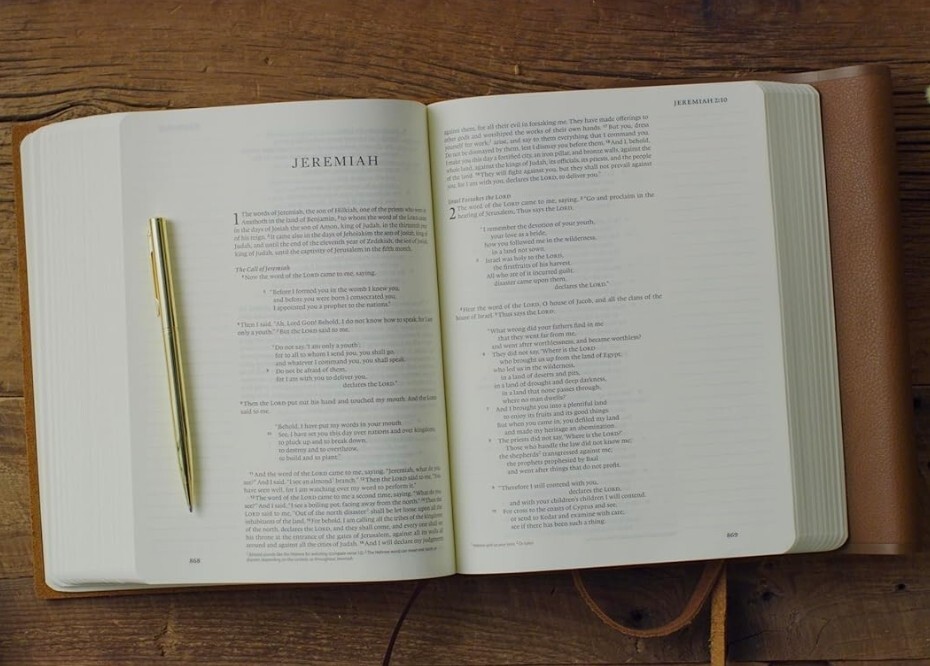 JEREMIAH
1 The words of Jeremiah, the son of Hilkiah, one of the priests who were in
Anathoth in the land of Benjamin, 2 to whom the word of the LORD came
in the days of Josiah the son of Amon, king of Judah, in the thirteenth year
of his reign. 3 It came also in the days of Jehoiakim the son of Josiah, king of
Judah, and until the end of the eleventh year of Zedekiah, the son of Josiah,
king of Judah, until the captivity of Jerusalem in the fifth month.
The Call of Jeremiah
4 Now the word of the LORD came to me, saying,
5 "Before I formed you in the womb I knew you,
and before you were born I consecrated you;
I appointed you a prophet to the nations."
6 Then I said, "Ah, Lord GOD! Behold, I do not know how to speak, for I am
only a youth." 7 But the LORD said to me,
"Do not say, 'I am only a youth';
for to all to whom I send you, you shall go,
and whatever I command you, you shall speak.
8 Do not be afraid of them,
for I am with you to deliver you,
declares the LORD."
9 Then the LORD put out his hand and touched my mouth. And the LORD
said to me,
"Behold, I have put my words in your mouth.
10 See, I have set you this day over nations and over kingdoms,
to pluck up and to break down,
to destroy and to overthrow,
to build and to plant."
11 And the word of the LORD came to me, saying, "Jeremiah, what do you
see?" And I said, "I see an almond branch." 12 Then the LORD said to me, "You
have seen well, for I am watching over my word to perform it."
13 The word of the LORD came to me a second time, saying, "What do you
see?" And I said, "I see a boiling pot, facing away from the north." 14 Then the
LORD said to me, "Out of the north disaster shall be let loose upon all the
inhabitants of the land. 15 For behold, I am calling all the tribes of the kingdoms
of the north, declares the LORD, and they shall come, and every one shall set
his throne at the entrance of the gates of Jerusalem, against all its walls all
around and against all the cities of Judah. 16 And I will declare my judgments
868
JEREMIAH 2:10
against them, for all their evil in forsaking me. They have made offerings to
other gods and worshiped the works of their own hands. 17 But you, dress
yourself for work; arise, and say to them everything that I command you.
Do not be dismayed by them, lest I dismay you before them. 18 And I, behold,
I make you this day a fortified city, an iron pillar, and bronze walls, against the
whole land, against the kings of Judah, its officials, its priests, and the people
of the land. 19 They will fight against you, but they shall not prevail against
you, for I am with you, declares the LORD, to deliver you."
Israel Forsakes the LORD
2 The word of the LORD came to me, saying, 2 "Go and proclaim in the
hearing of Jerusalem, Thus says the LORD,
"I remember the devotion of your youth,
your love as a bride,
how you followed me in the wilderness,
in a land not sown.
3 Israel was holy to the LORD,
the firstfruits of his harvest.
All who ate of it incurred guilt;
disaster came upon them,
declares the LORD."
4 Hear the word of the LORD, O house of Jacob, and all the clans of the
house of Israel. 5 Thus says the LORD:
"What wrong did your fathers find in me
that they went far from me,
and went after worthlessness, and became worthless?
6 They did not say, 'Where is the LORD
who brought us up from the land of Egypt,
who led us in the wilderness,
in a land of deserts and pits,
in a land of drought and deep darkness,
in a land that none passes through,
where no man dwells?'
7 And I brought you into a plentiful land
to enjoy its fruits and its good things.
But when you came in, you defiled my land
and made my heritage an abomination.
8 The priests did not say, 'Where is the LORD?'
Those who handle the law did not know me;
the shepherds transgressed against me;
the prophets prophesied by Baal
and went after things that do not profit.
9 "Therefore I still contend with you,
declares the LORD,
and with your children's children I will contend.
10 For cross to the coasts of Cyprus and see,
or send to Kedar and examine with care;
see if there has been such a thing.
869